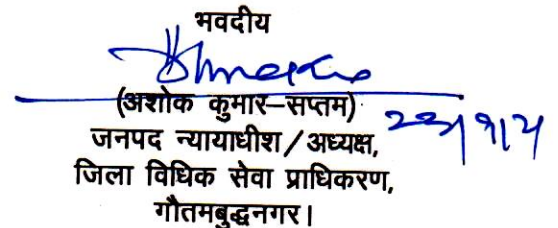 भवदीय
(अशोक कुमार–सप्तम)
जनपद न्यायाधीश/अध्यक्ष,
जिला विधिक सेवा प्राधिकरण,
गौतमबुद्धनगर।